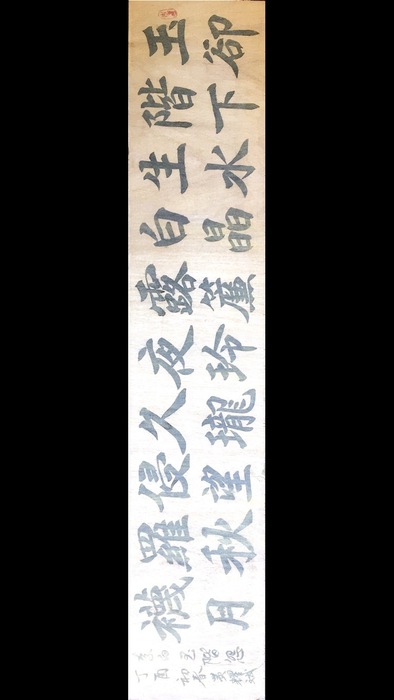 玉階生白露夜久侵羅襪
卻下水晶簾玲瓏望秋月
李白玉階怨
丁酉初春